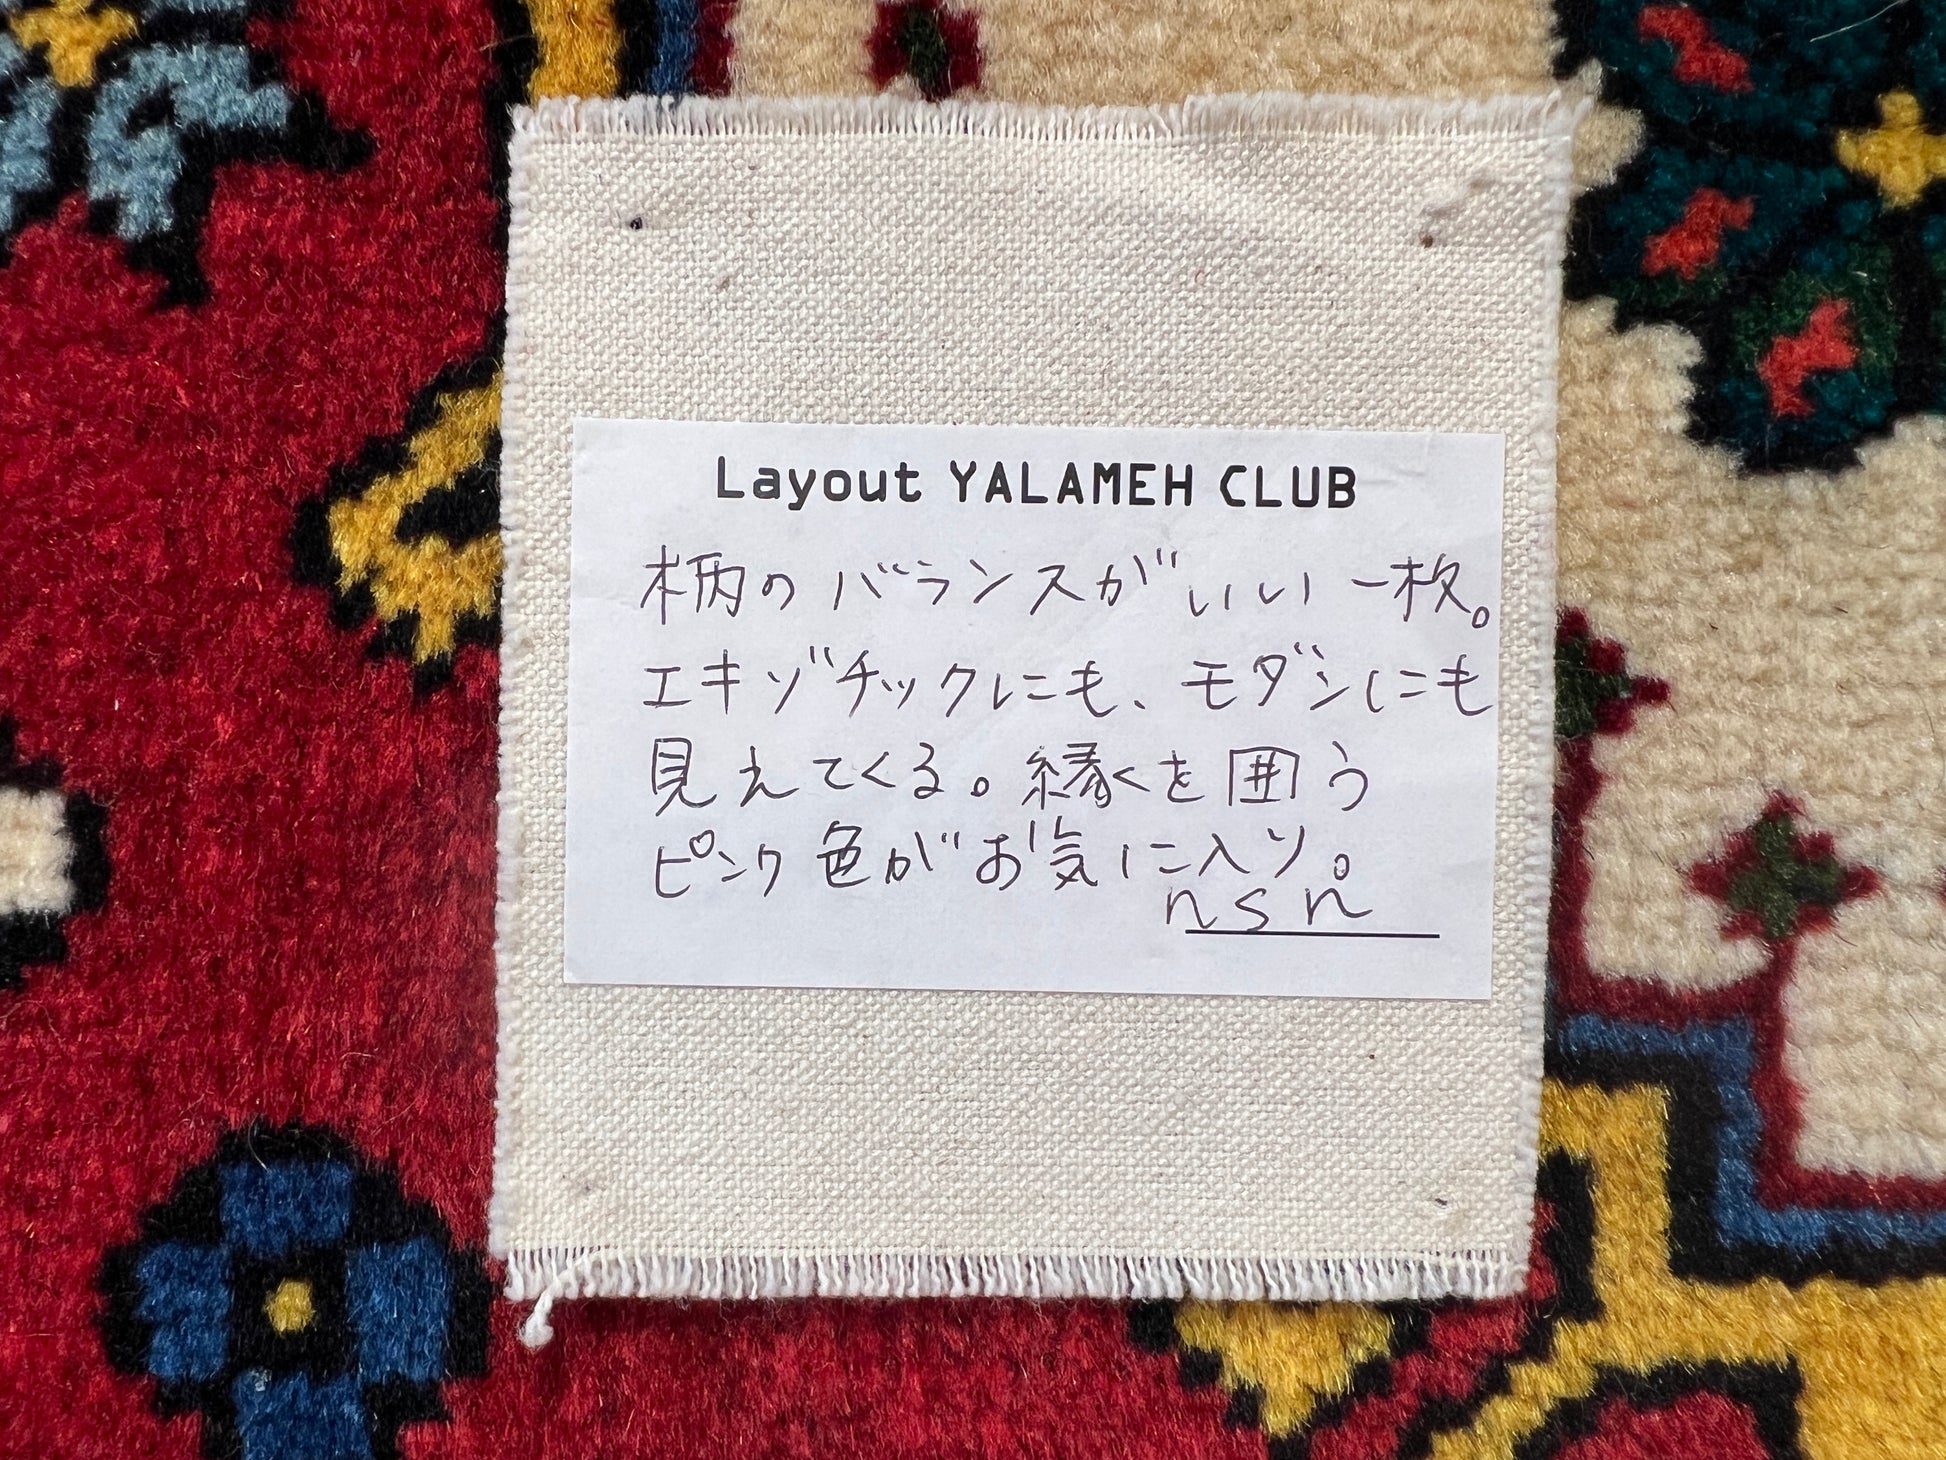 Layout YALAMEH CLUB
柄のバランスがいい一枚。
エキゾチックにも、モダンにも
見えてくる。縁くを囲う
ピンク色がお気に入り。
nsn